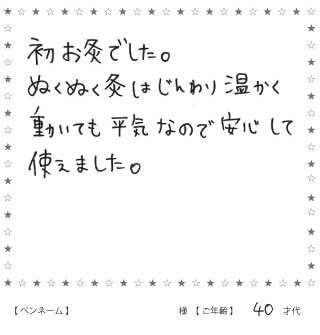 初お灸でした。
ぬくぬく灸はじんわり温かく
動いても平気なので安心して
使えました。
【ペンネーム】 様 【ご年齢】 40 才代